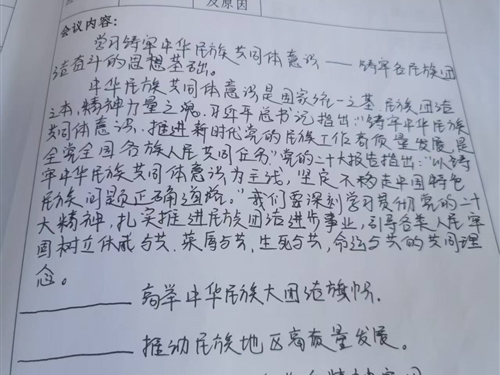 及原因
会议内容:
学习铸牢中华民族共同体意识——铸牢各民族团
结奋斗的思想基础。
中华民族共同体意识是国家统一之基、民族团结
之本,精神力量之魂。习近平总书记指出:"铸牢中华民族
共同体意识、推进新时代党的民族工作高质量发展,是
全党全国各族人民共同任务"党的二十大报告指出:"以铸
牢中华民族共同体意识为主线,坚定不移走中国特色
民族问题正确道路。"我们要深刻学习贯彻党的二十
大精神,扎实推进民族团结进步事业,引导各类人民牢
固树立休戚与共、荣辱与共、生死与共,命运与共的共同理
念。
高举中华民族大团结旗帜.
推动民族地区高质量发展。